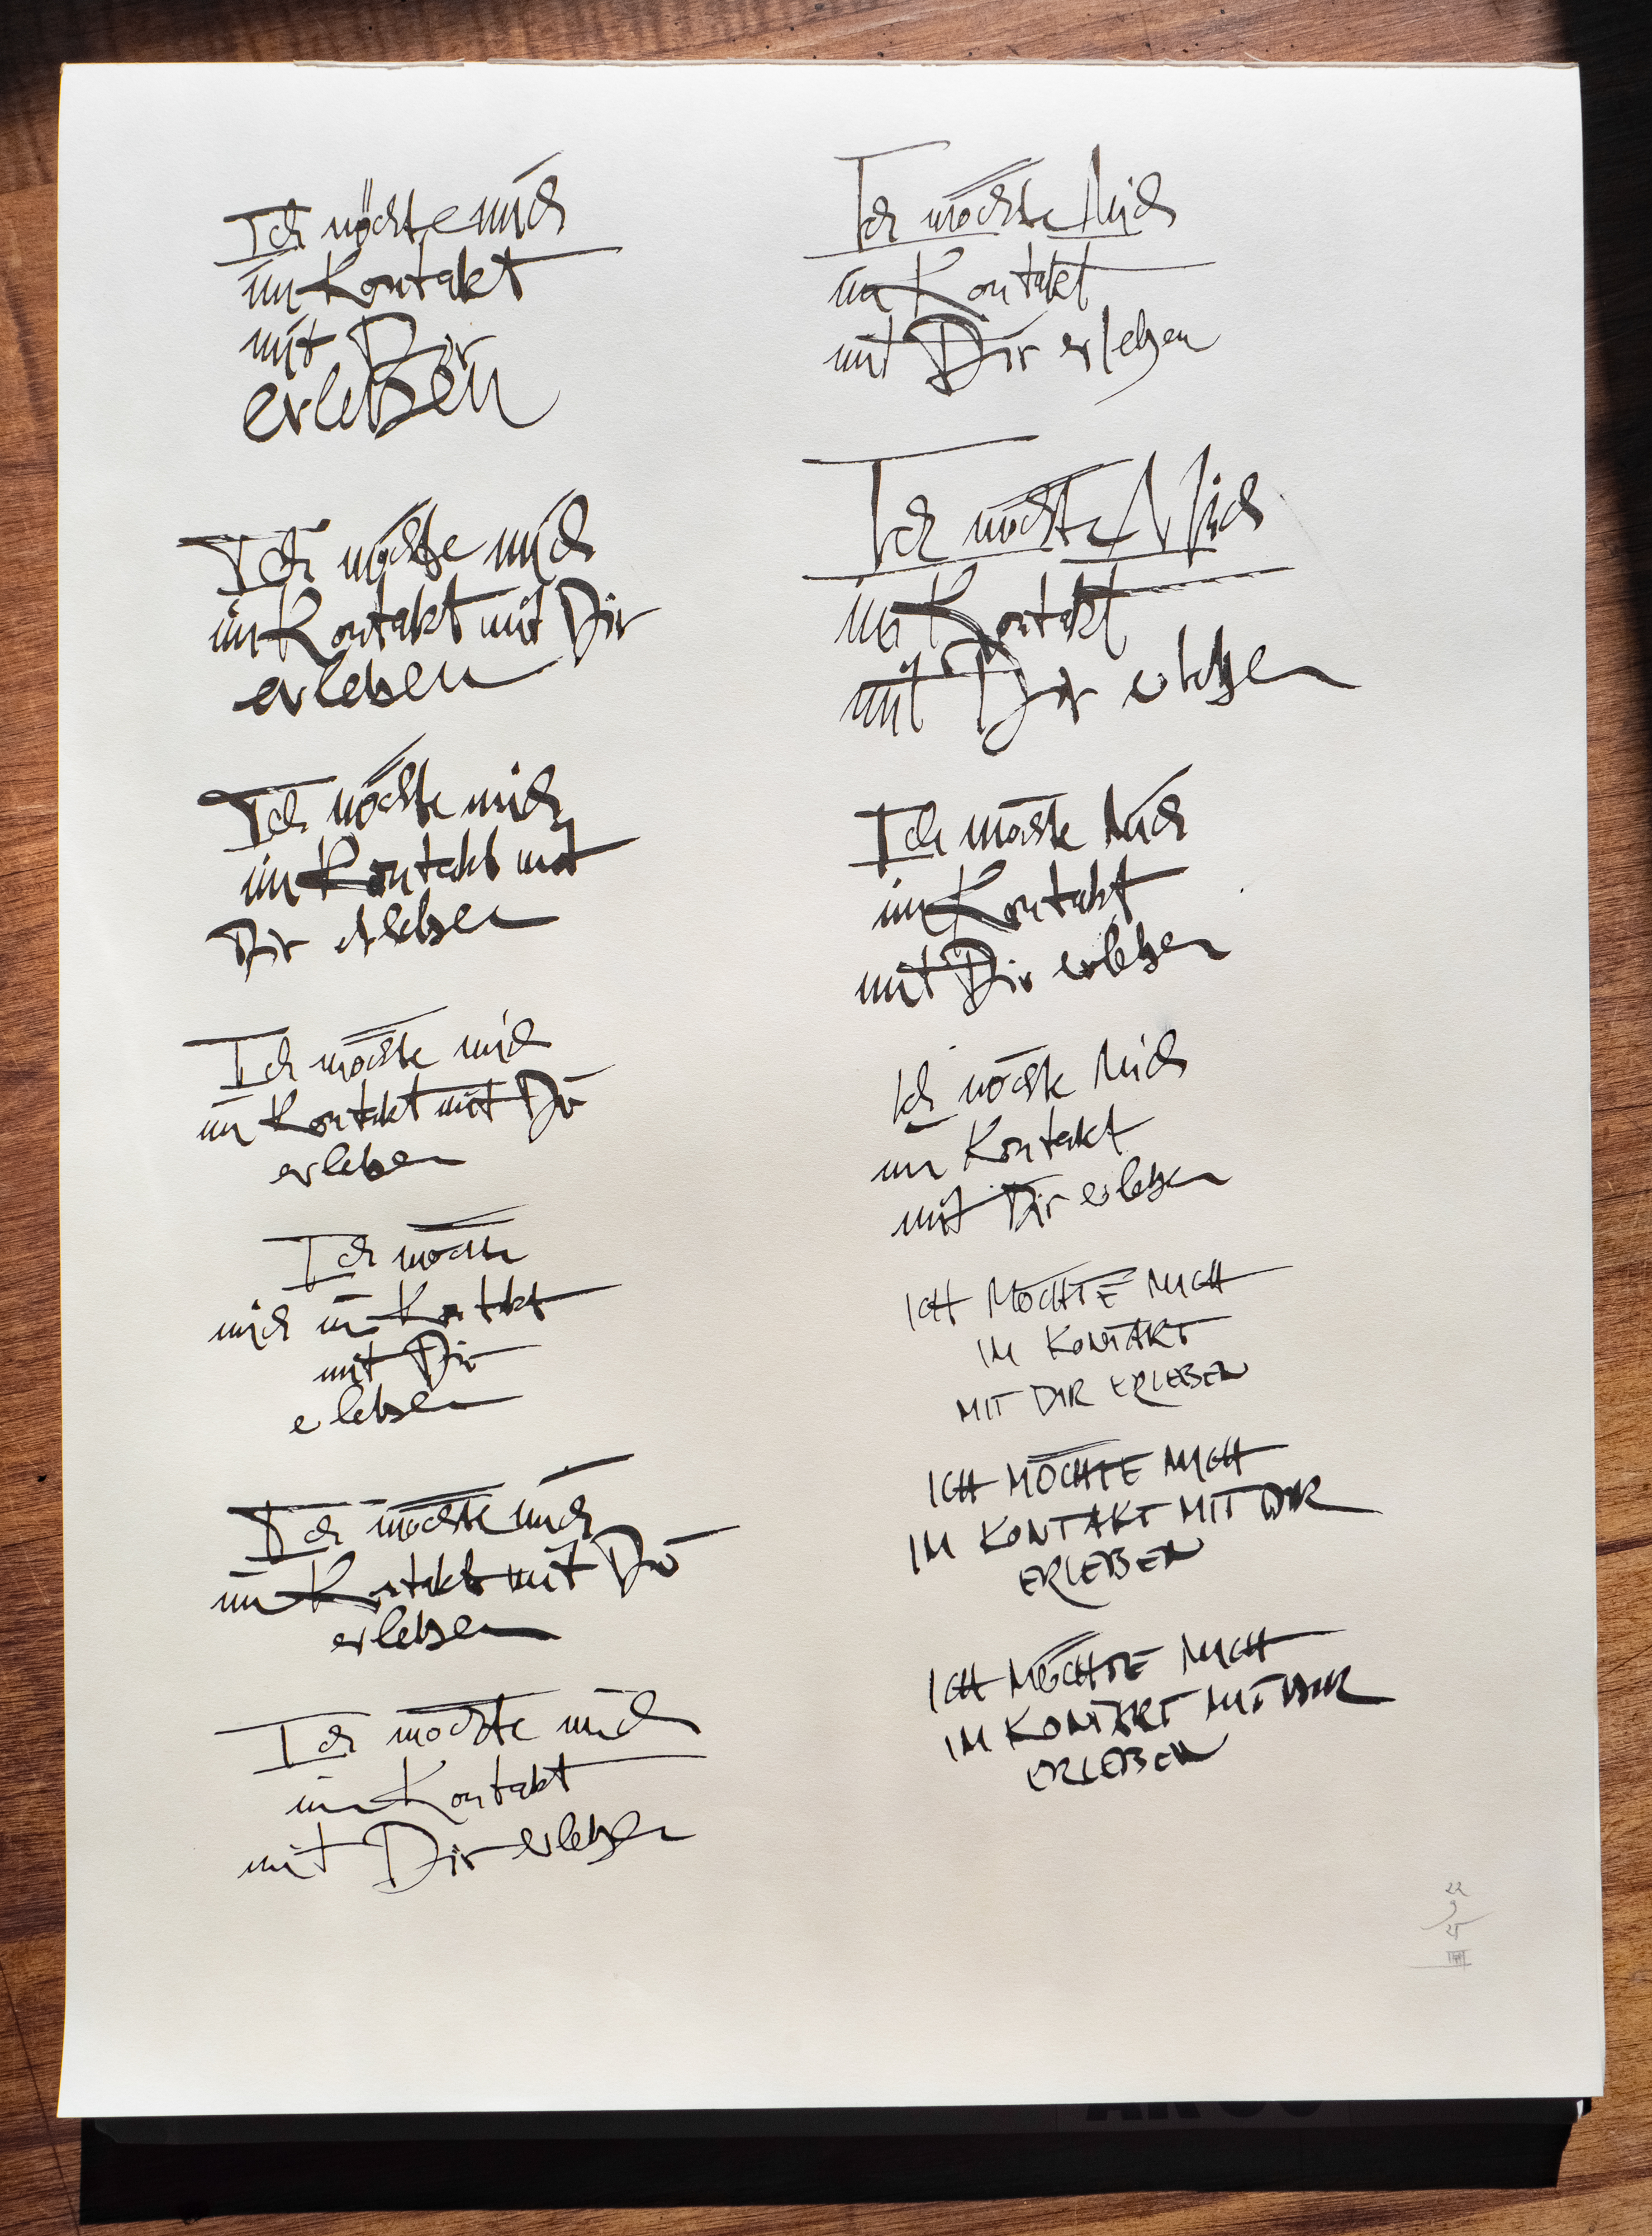 Ich möchte mich
im Kontakt
mit Dir
erleben
Ich möchte mich
im Kontakt mit Dir
erleben
Ich möchte mich
im Kontakt mit
Dir erleben
Ich möchte mich
im Kontakt mit Dir
erleben
Ich möchte
mich im Kontakt
mit Dir
erleben
Ich möchte mich
im Kontakt mit Dir
erleben
Ich möchte mich
im Kontakt
mit Dir erleben
Ich möchte Mich
im Kontakt
mit Dir erleben
Ich möchte Mich
im Kontakt
mit Dir erleben
Ich möchte Mich
im Kontakt
mit Dir erleben
Ich möchte Mich
im Kontakt
mit Dir erleben
ICH MÖCHTE MICH
IM KONTAKT
MIT DIR ERLEBEN
ICH MÖCHTE MICH
IM KONTAKT MIT DIR
ERLEBEN
ICH MÖCHTE MICH
IM KONTAKT MIT DIR
ERLEBEN
22
9